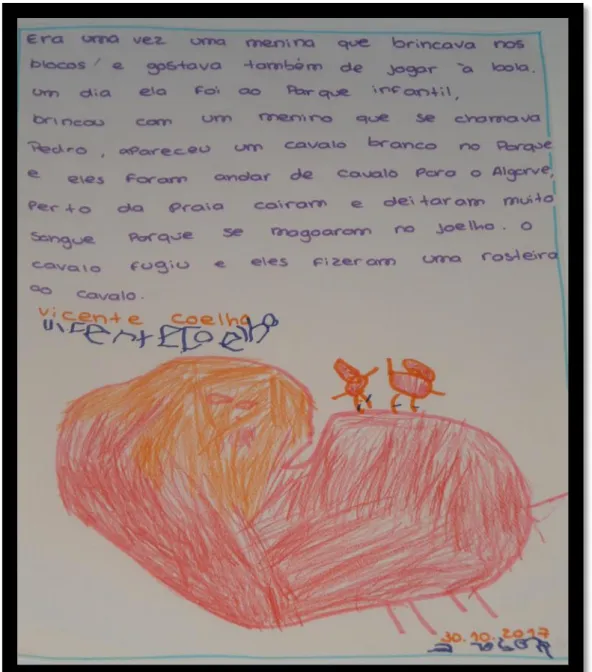 Era uma vez uma menina que brincava nos
blocos e gostava também de jogar à bola.
um dia ela foi ao Parque infantil,
brincou com um menino que se chamava
Pedro, apareceu um cavalo branco no Parque
e eles foram andar de cavalo Para o Algarve,
Perto da Praia cairam e deitaram muito
sangue Porque se magoaram no joelho. O
cavalo fugiu e eles fizeram uma rasteira
ao cavalo.
vicente coelho
vicente coelho
30.10.2017